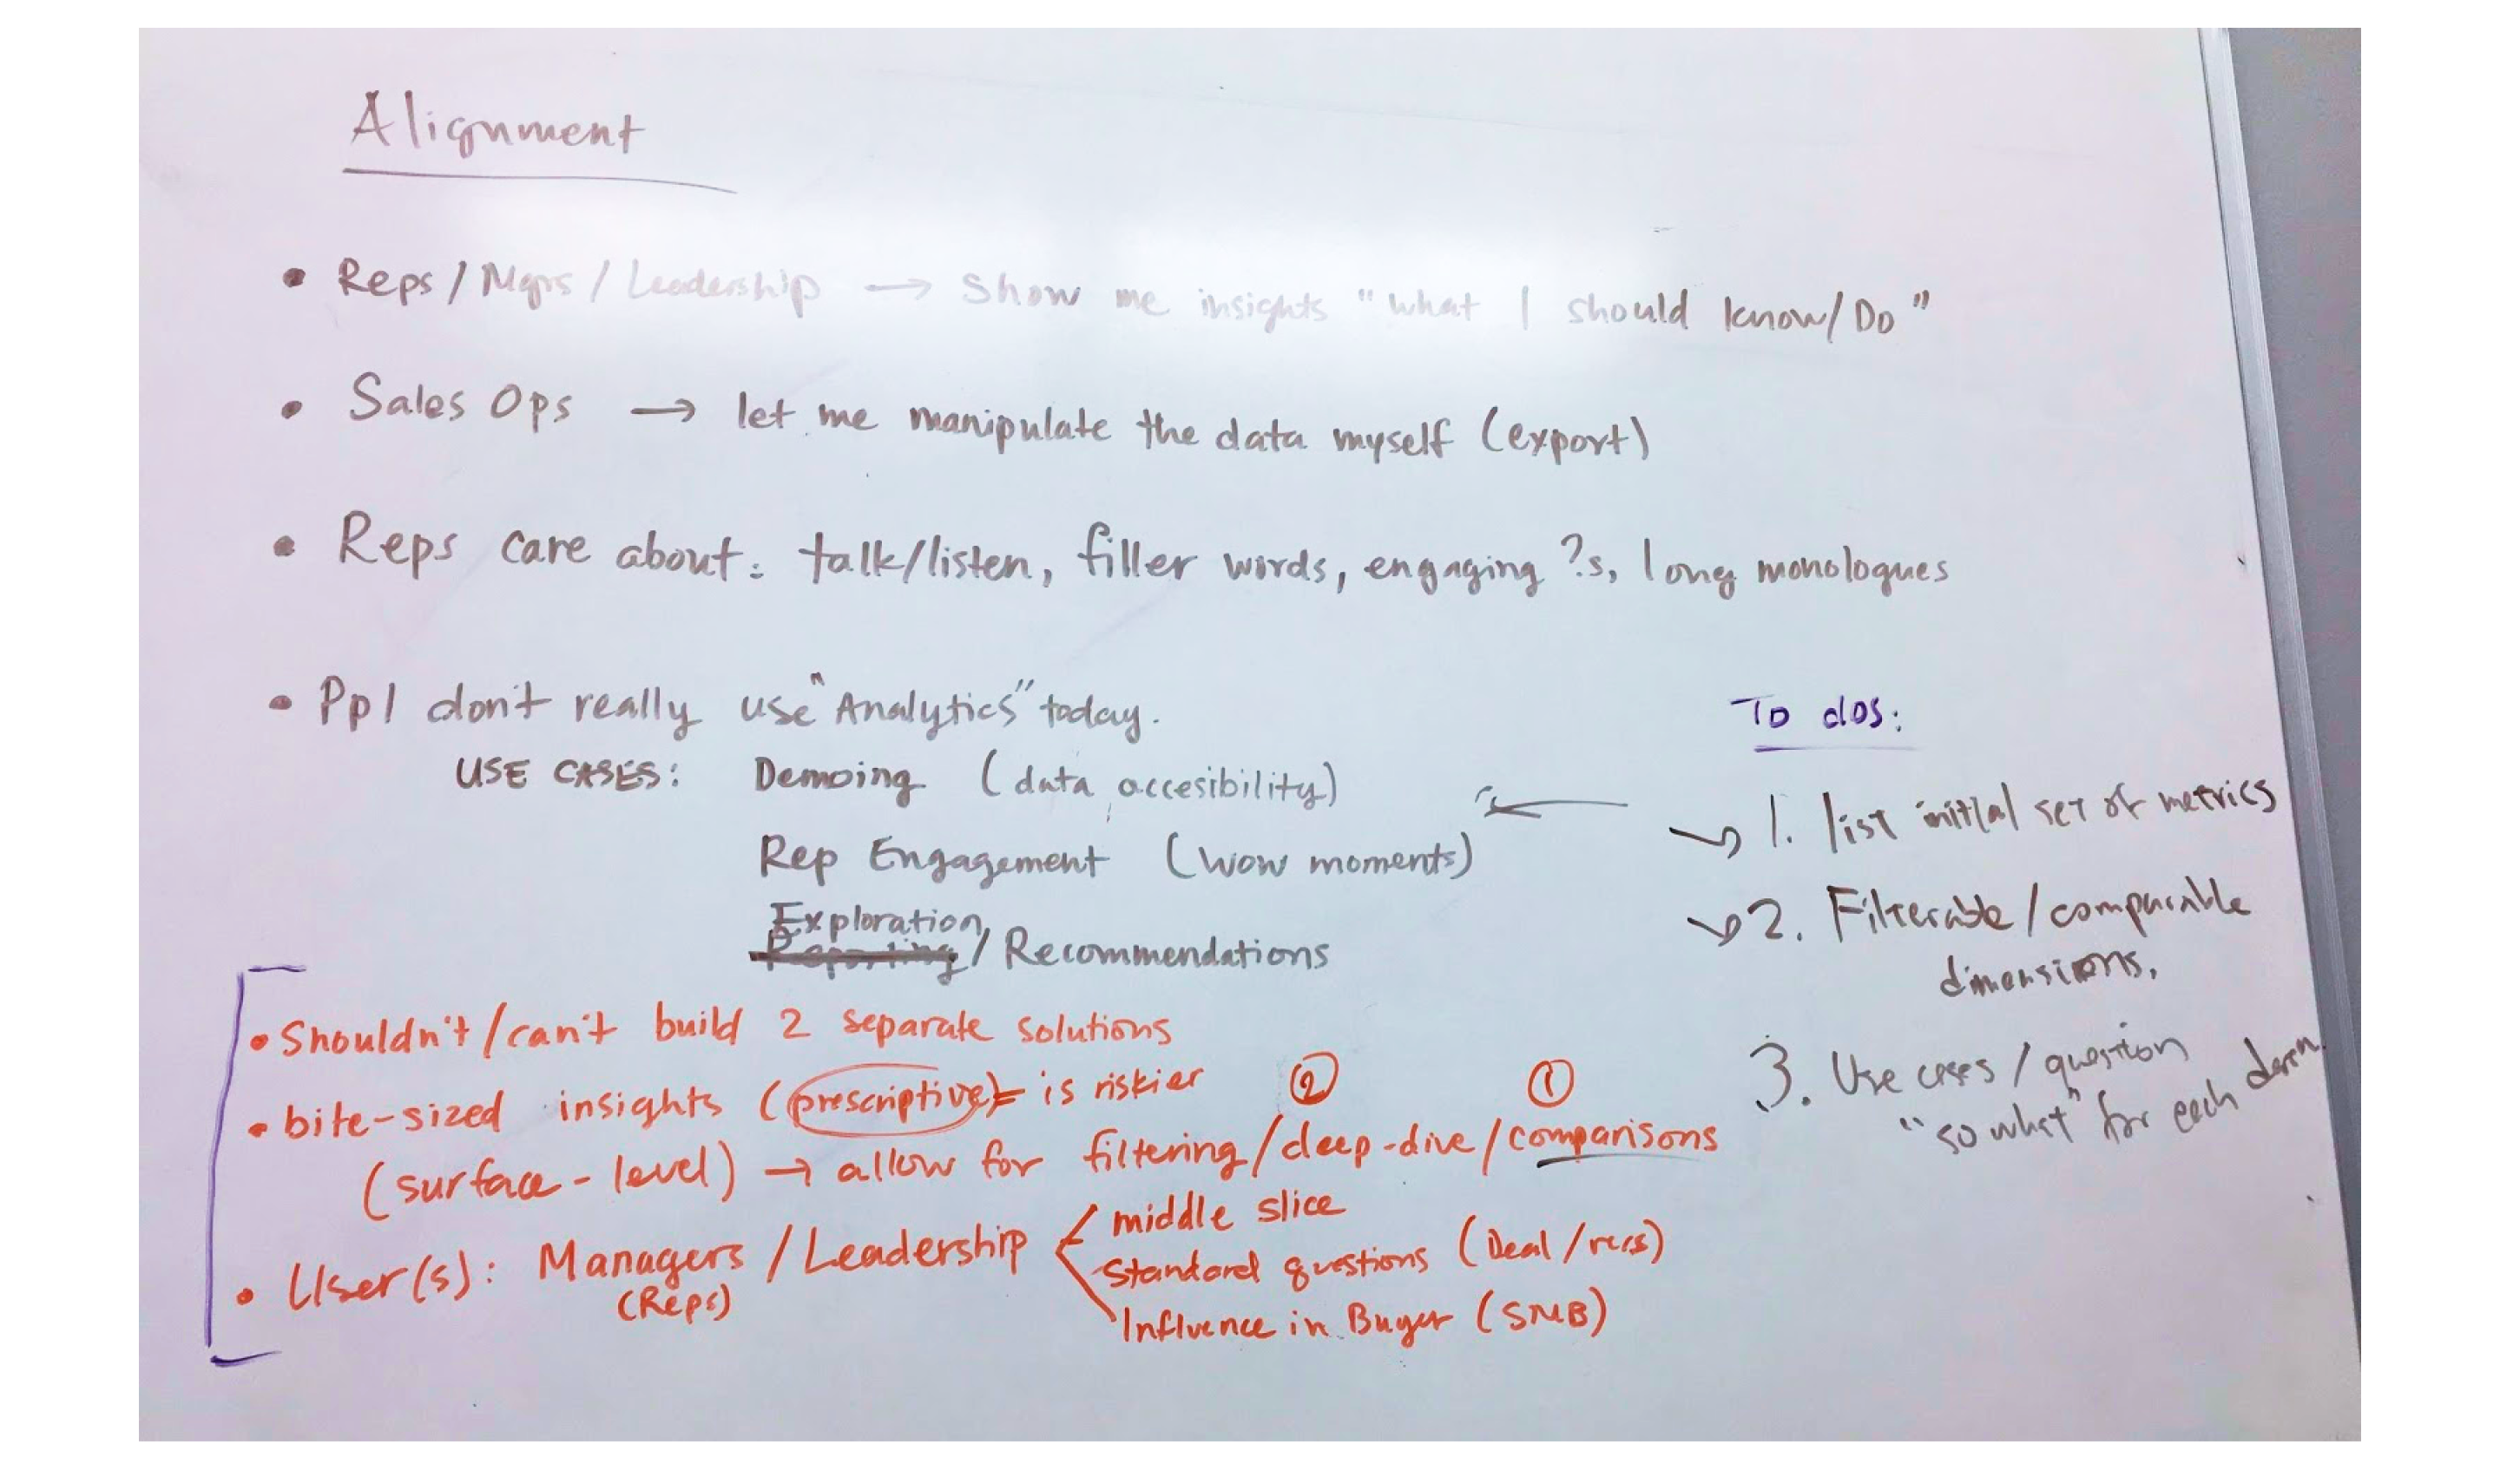 Alignment
• Reps / Mgrs / Leadership → Show me insights "what I should know/Do"
• Sales Ops → let me manipulate the data myself (export)
• Reps care about: talk/listen, filler words, engaging ?s, long monologues
• Ppl don't really use "Analytics" today.
USE CASES: Demoing (data accesibility)
Rep Engagement (wow moments)
Exploration
Reporting / Recommendations
• Shouldn't/can't build 2 separate solutions
• bite-sized insights (prescriptive) is riskier
② ①
(surface-level) → allow for filtering/deep-dive/comparisons
• User(s): Managers / Leadership
(Reps)
middle slice
Standard questions (Deal/recs)
Influence in Buyer (SMB)
To dos:
1. list initial set of metrics
2. Filterable / comparable
dimensions.
3. Use cases / question
"so what" for each